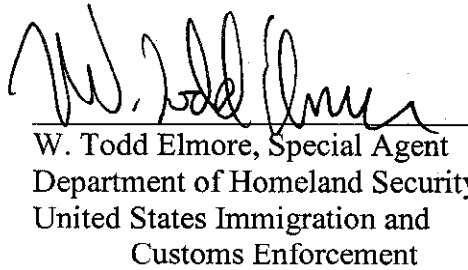 W. Todd Elmore
W. Todd Elmore, Special Agent
Department of Homeland Security
United States Immigration and
Customs Enforcement